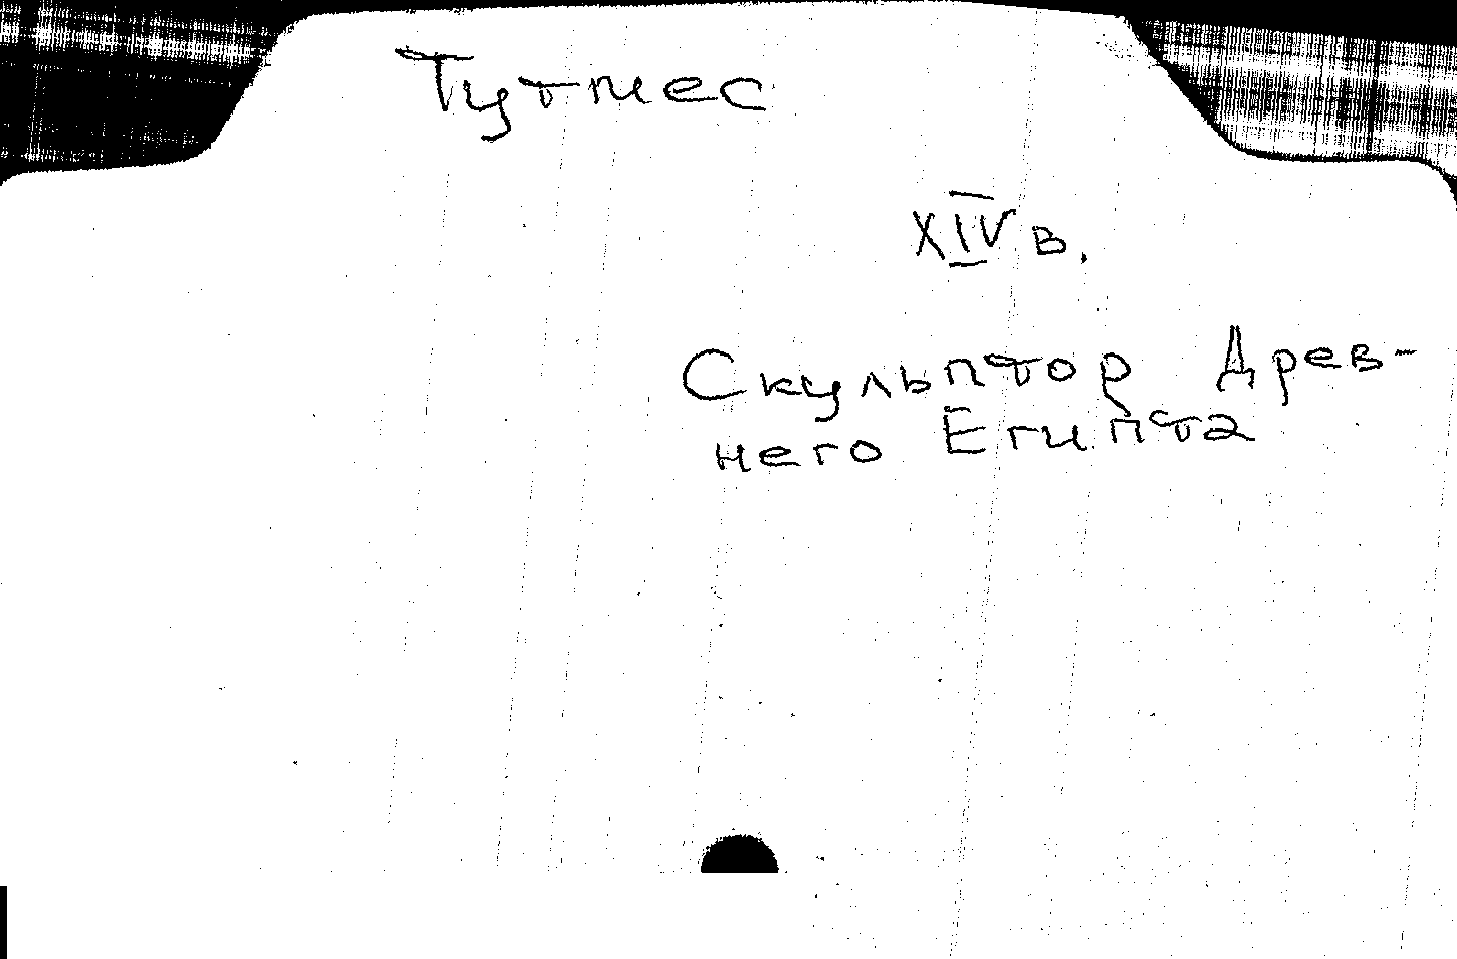 Тутмес
XIV в.
Скульптор Древ-
него Египта